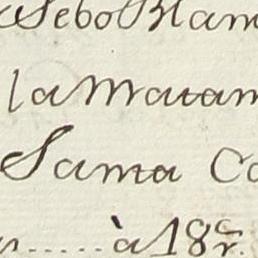 Sebo Blam
la Matam
Sama Co
..... à 18s.